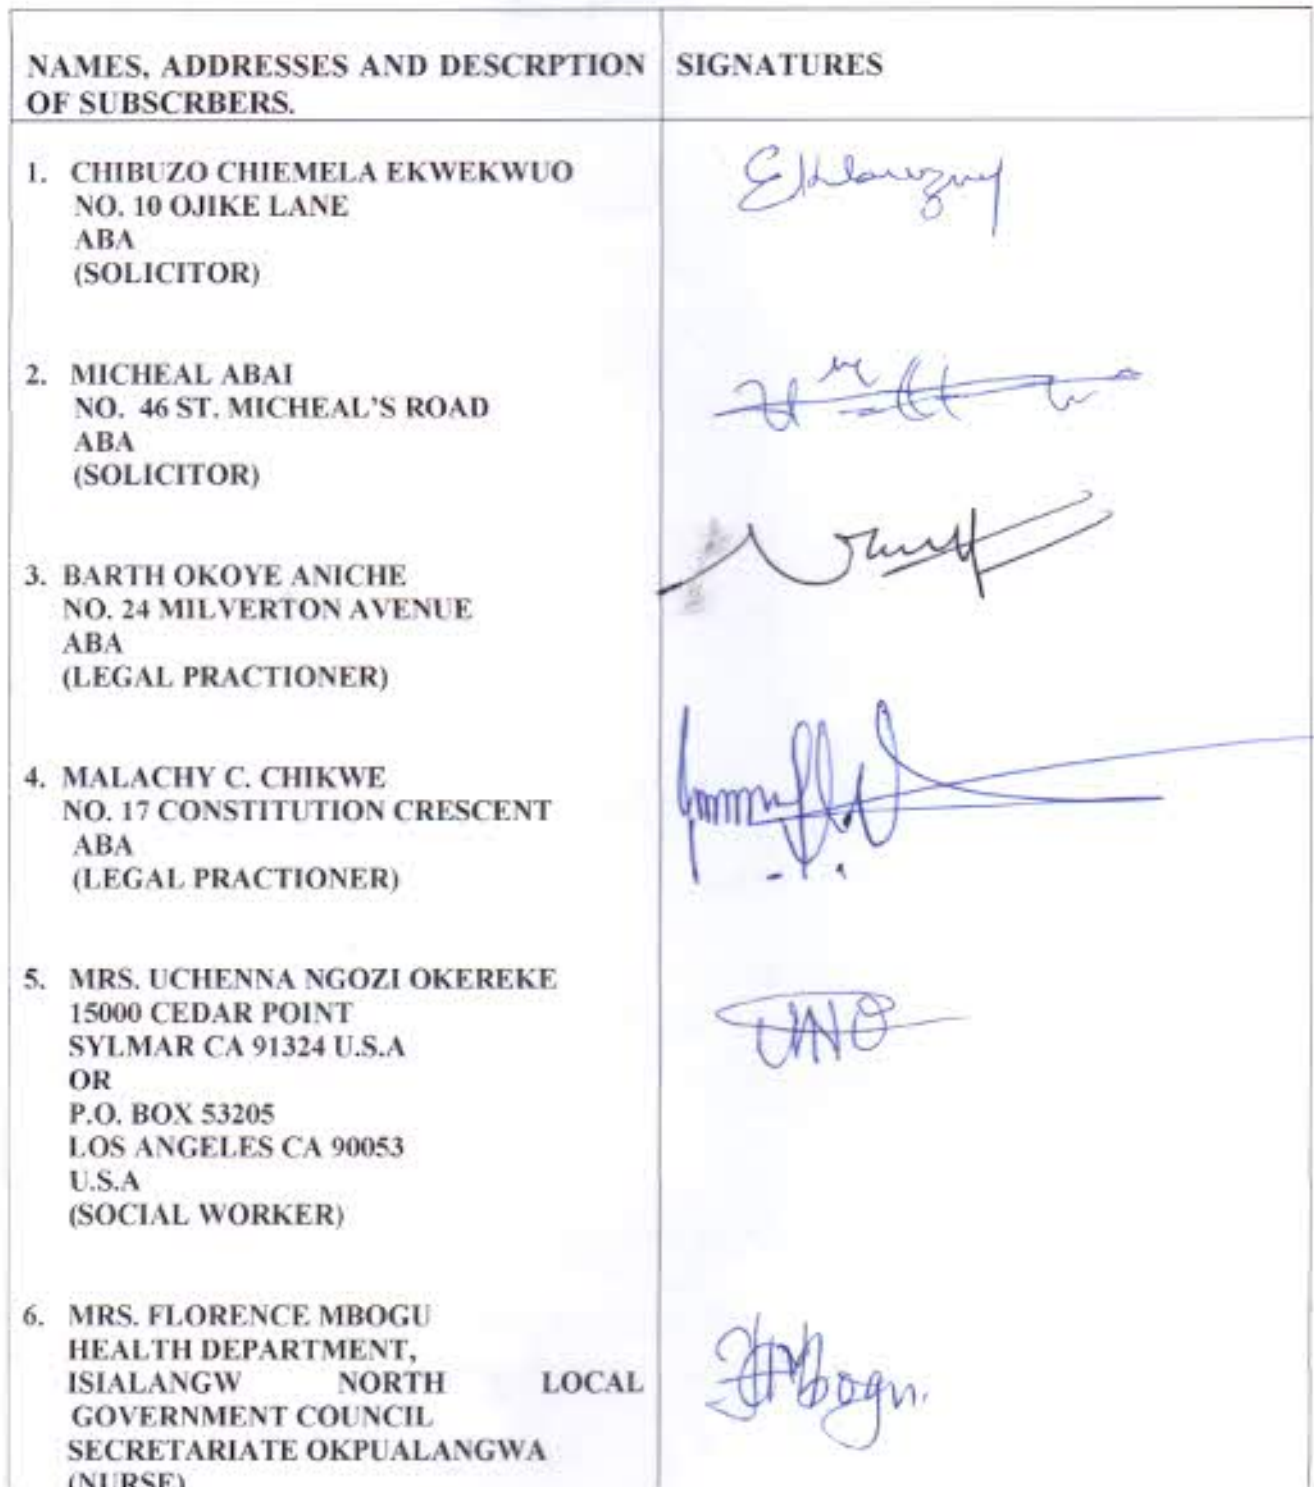 NAMES, ADDRESSES AND DESCRPTION
OF SUBSCRBERS.
SIGNATURES
1. CHIBUZO CHIEMELA EKWEKWUO
NO. 10 OJIKE LANE
ABA
(SOLICITOR)
2. MICHEAL ABAI
NO. 46 ST. MICHEAL'S ROAD
ABA
(SOLICITOR)
3. BARTH OKOYE ANICHE
NO. 24 MILVERTON AVENUE
ABA
(LEGAL PRACTIONER)
4. MALACHY C. CHIKWE
NO. 17 CONSTITUTION CRESCENT
ABA
(LEGAL PRACTIONER)
5. MRS. UCHENNA NGOZI OKEREKE
15000 CEDAR POINT
SYLMAR CA 91324 U.S.A
OR
P.O. BOX 53205
LOS ANGELES CA 90053
U.S.A
(SOCIAL WORKER)
UNO
6. MRS. FLORENCE MBOGU
HEALTH DEPARTMENT,
ISIALANGW NORTH LOCAL
GOVERNMENT COUNCIL
SECRETARIATE OKPUALANGWA
(NURSE)
Mbogu.